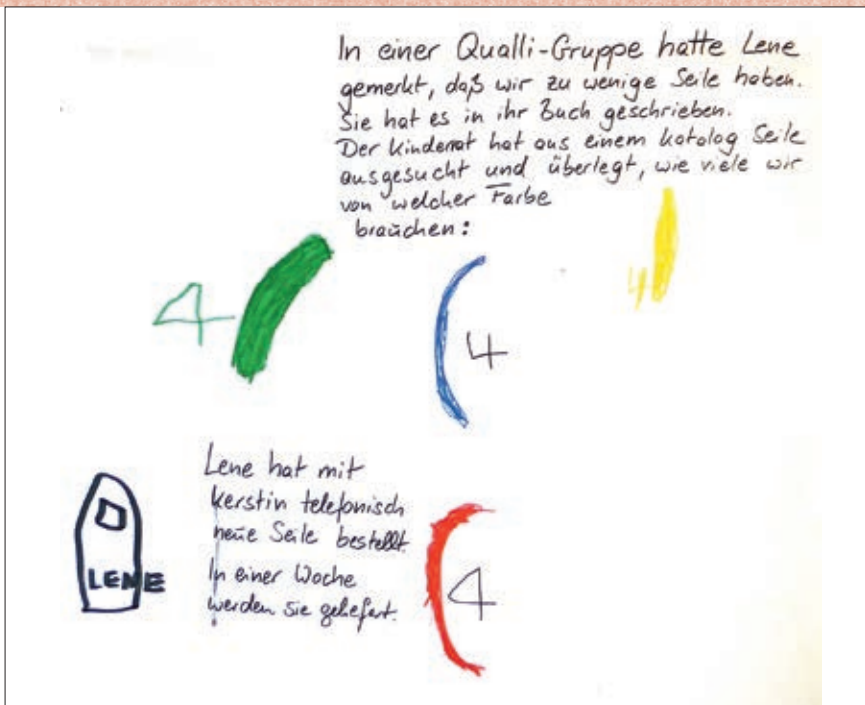 In einer Qualli-Gruppe hatte Lene
gemerkt, daß wir zu wenige Seile haben.
Sie hat es in ihr Buch geschrieben.
Der Kinderrat hat aus einem Katalog Seile
ausgesucht und überlegt, wie viele wir
von welcher Farbe
brauchen:
4
4
4
Lene hat mit
Kerstin telefonisch
neue Seile bestellt.
In einer Woche
werden sie geliefert.
LENE
4